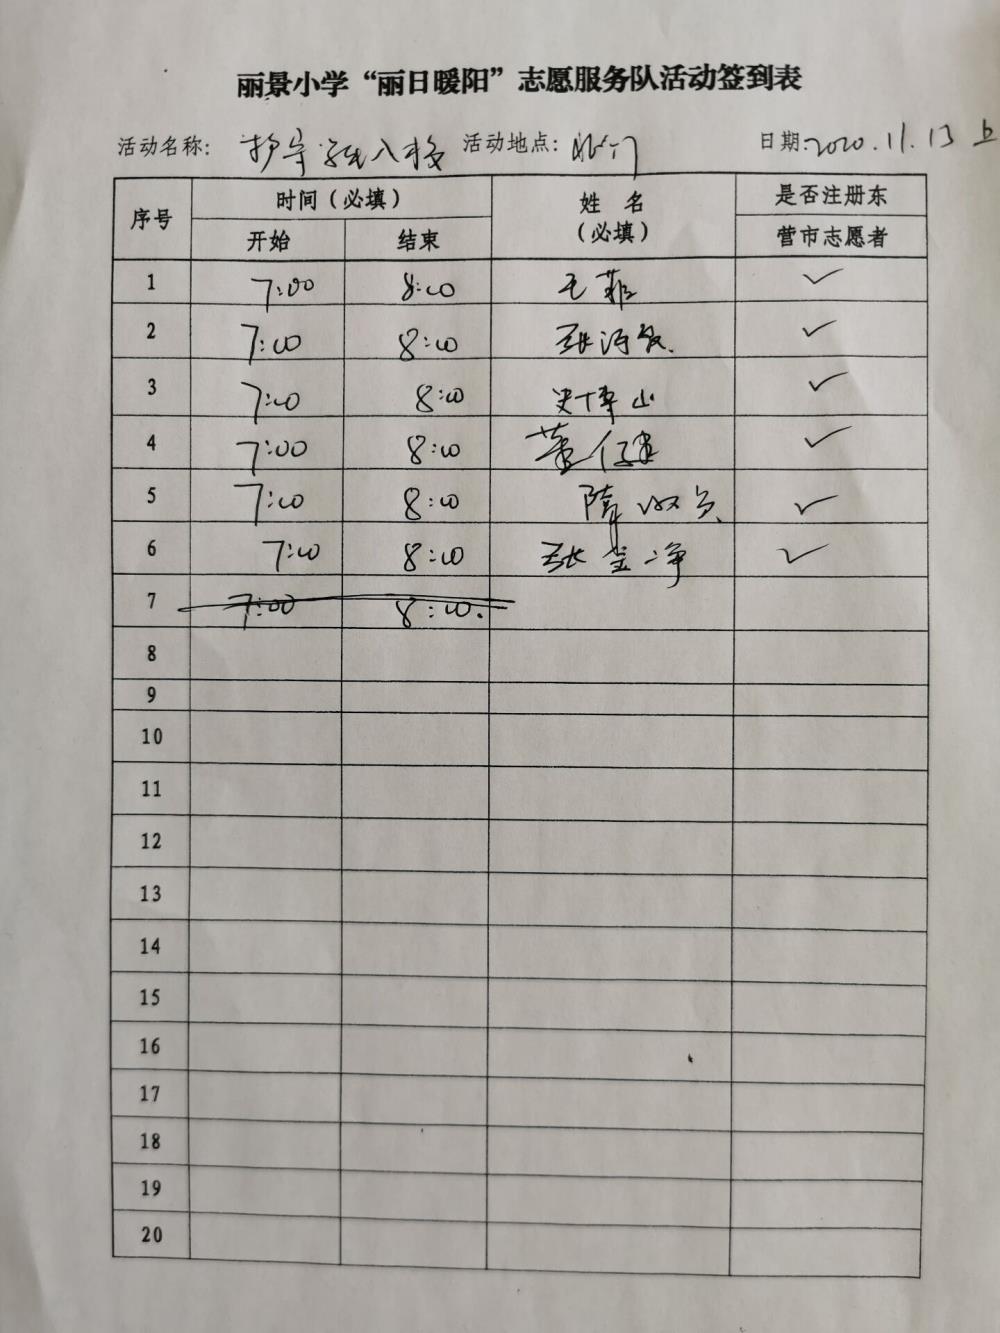 丽景小学“丽日暖阳”志愿服务队活动签到表
活动名称: 护守 入校 活动地点: 北门 日期: 2020.11.13 上
序号 时间(必填) 姓 名 (必填) 是否注册东营市志愿者
开始 结束
1 7:00 8:00 王菲 ✓
2 7:00 8:00 张 ✓
3 7:00 8:00 史博山 ✓
4 7:00 8:00 董 ✓
5 7:00 8:00 隋 ✓
6 7:00 8:00 张 净 ✓
7 7:00 8:00.
8
9
10
11
12
13
14
15
16
17
18
19
20